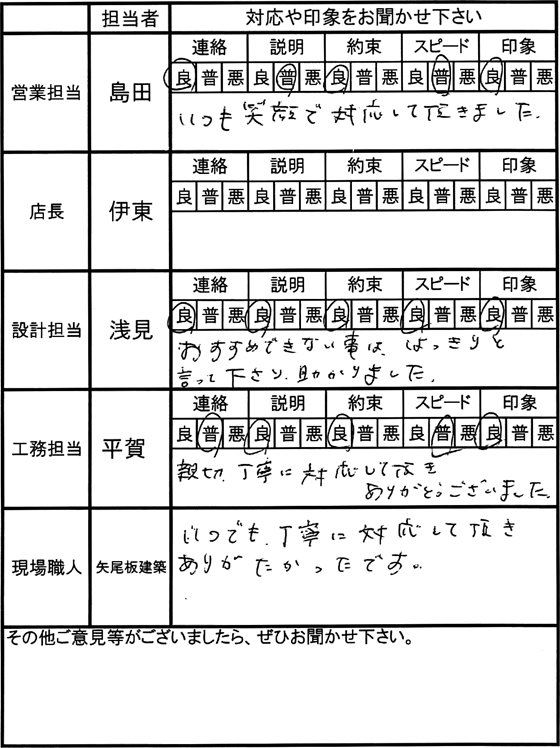 担当者 対応や印象をお聞かせ下さい
営業担当 島田
連絡 説明 約束 スピード 印象
良 普 悪 良 普 悪 良 普 悪 良 普 悪 良 普 悪
いつも笑顔で対応して頂きました。
店長 伊東
連絡 説明 約束 スピード 印象
良 普 悪 良 普 悪 良 普 悪 良 普 悪 良 普 悪
設計担当 浅見
連絡 説明 約束 スピード 印象
良 普 悪 良 普 悪 良 普 悪 良 普 悪 良 普 悪
おすすめできない事は、はっきりと
言って下さり、助かりました。
工務担当 平賀
連絡 説明 約束 スピード 印象
良 普 悪 良 普 悪 良 普 悪 良 普 悪 良 普 悪
親切、丁寧に対応して頂き
ありがとうございました。
現場職人 矢尾板建築
いつでも、丁寧に対応して頂き
ありがたかったです。
その他ご意見等がございましたら、ぜひお聞かせ下さい。